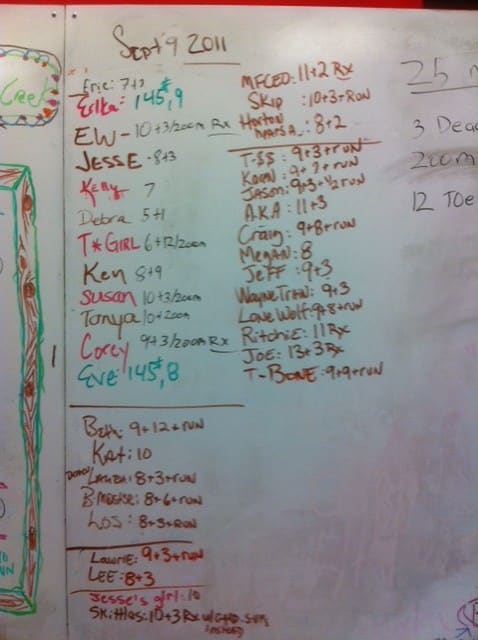 Sept 9 2011
Eric: 7+3
Erika: 145#, 9
EW- 10+3/200m Rx
JESSE - 8+3
Kelly 7
Debra 5+1
T*GIRL 6+12/200m
Ken 8+9
Susan 10+3/200m
Tonya 10+200m
Corey 9+3/200m Rx
Eve: 145#, 8
Beth: 9+12+RUN
Kat: 10
LAUREN: 8+3+RUN
B MOOSE: 8+6+RUN
LOS: 8+3+RUN
LAWRIE: 9+3+RUN
LEE: 8+3
Jesse's girl: 10
Skittles: 10+3 Rx
MFCEO: 11+2 Rx
SKIP: 10+3+RUN
Horton
8+2
T-SS: 9+3+RUN
Karen: 9+7+RUN
Jason: 9+3+1/2 RUN
A.K.A: 11+3
Craig: 9+8+RUN
Megan: 8
Jeff: 9+3
Wayne Train: 9+3
Lone Wolf: 9+8+RUN
Ritchie: 11 Rx
Joe: 13+3 Rx
T-Bone: 9+9+RUN
25
3 Dead
200m
12 Toe
Creek